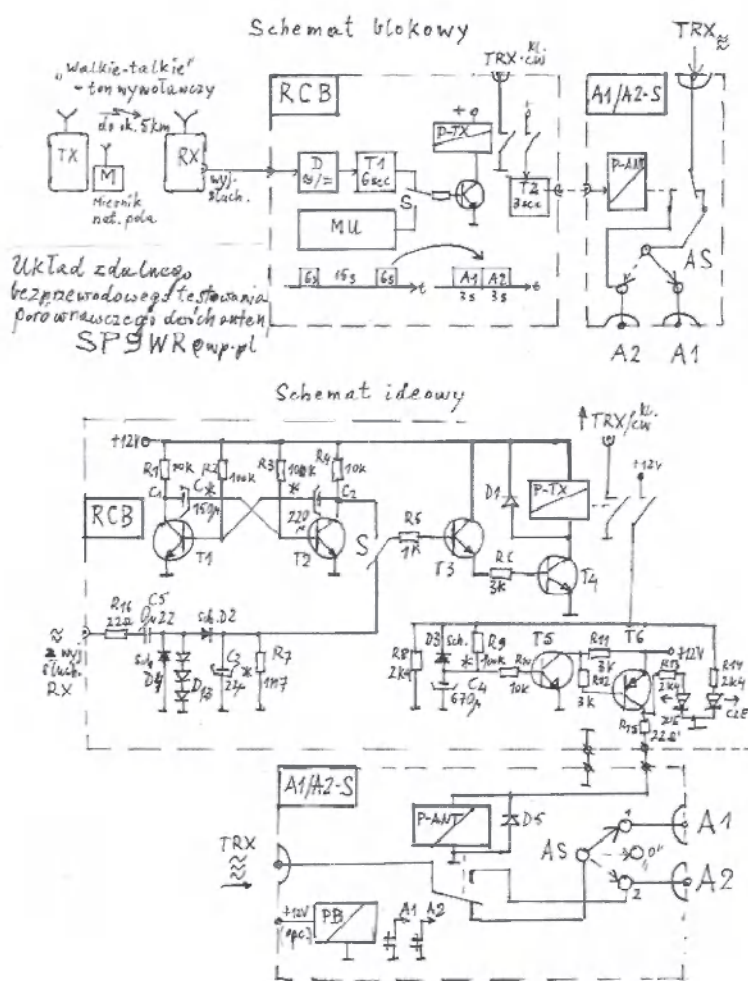 Schemat blokowy
„Walkie-talkie"
- ton wywoławczy
do ok. 5km
TX
M
Miernik
nat. pola
RX
wyj.
słuch.
RCB
D
≈/=
T1
6sec
S
MU
P-TX
TRX
kl.
cw
T2
3sec
6s
15s
6s
t
A1
A2
3s
3s
t
TRX
A1/A2-S
P-ANT
AS
A2
A1
Układ zdalnego
bezprzewodowego testowania
porównawczego dwóch anten
SP9WR@wp.pl
Schemat ideowy
TRX/cw
kl.
+12V
+12V
RCB
R1
10k
R2
100k
R3
100k
R4
10k
C1
150µ
C2
220µ
T1
T2
S
R5
1k
T3
R6
3k
T4
D1
P-TX
≈
z wyj.
słuch.
RX
R16
22Ω
C5
0µ22
Sch. D2
Sch.
D13
C3
R7
1M7
R8
2k4
D3
Sch.
R9
100k
C4
670µ
R10
10k
T5
R11
3k
R12
3k
T6
+12V
R13
2k4
R14
2k4
CZE
R15
22Ω
A1/A2-S
TRX
P-ANT
D5
AS
1
"0"
2
A1
A2
+12V
(opc.)
PB
A1
A2